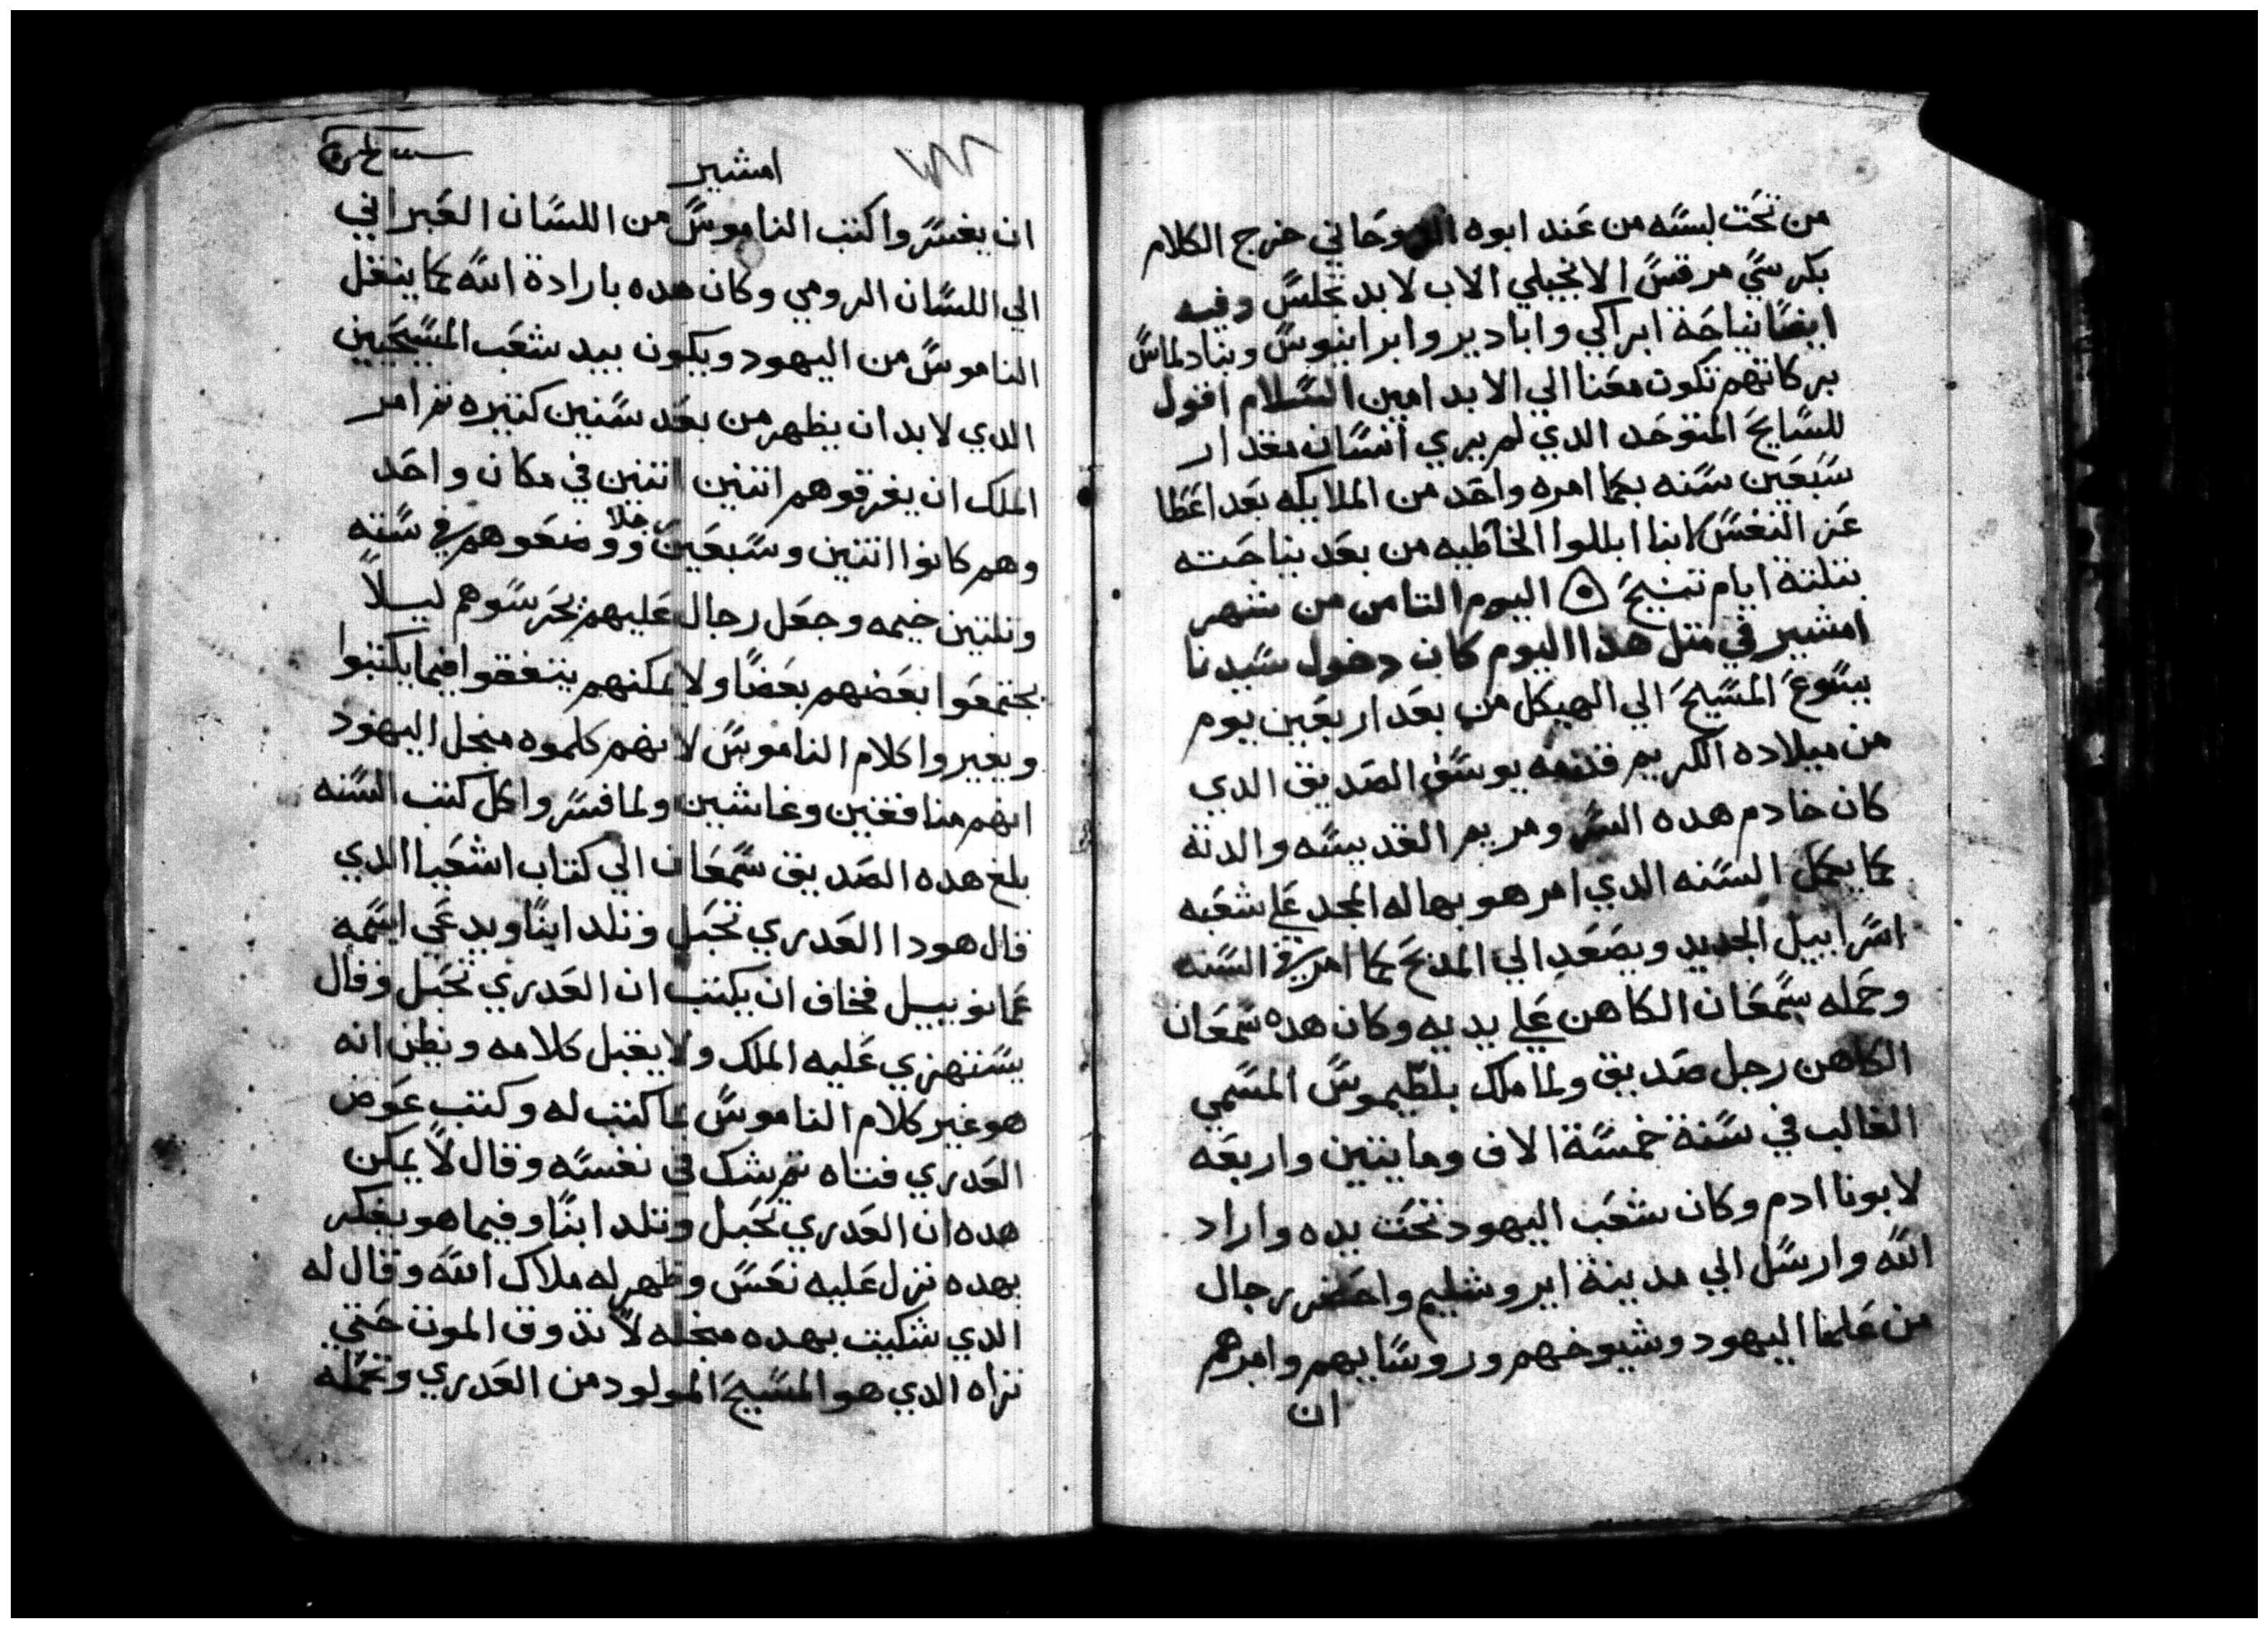 من تحت لبسه من عند ابوه الروحاني خرج الكلام
بكرسي مرقس الانجيلي الاب لا بد تجلس وفيه
ايضا نياحة ابراكي وابادير وابرانيوس
بركاتهم تكون معنا الي الابد امين السلام اقول
للسايح المتوحد الدي لم يري انسان مقدار
سبعين سنه بكما امره واحد من الملايكه بعد اعطا
عزا لنفس ابنا ابللوا الخاطيه من بعد نياحته
بتلتة ايام تنيح اليوم التامن من شهر
امشير في متل هدا اليوم كان دخول سيدنا
يسوع المسيح الي الهيكل من بعد اربعين يوم
من ميلاده الكريم قدمه يوسف الصديق الدي
كان خادم هده السر ومريم القديسه والدته
كما يكمل السنه الدي امر هو بها له المجد علي شعبه
اسراييل الجديد ويصعد الي المدبح كما امر في السنه
وحمله سمعان الكاهن علي يديه وكان هده سمعان
الكاهن رجل صديق ولما ملك بلطيموس المسمي
الغالب في سنة خمسة الاف ومايتين واربعه
لابونا ادم وكان شعب اليهود تحت يده واراد
الله وارسل الي مدينة ايروشليم واحضر رجال
من علما اليهود وشيوخهم وروسايهم وامرهم
ان
امشير
ان يفسروا كتب الناموس من اللسان العبراني
الي اللسان الرومي وكان هده بارادة الله كما ينقل
الناموس من اليهود ويكون بيد شعب المسيحيين
الدي لا بد ان يظهر من بعد سنين كتيره تم امر
الملك ان يفرقوهم اتنين اتنين في مكان واحد
وهم كانوا اتنين وسبعين رجلا ووضعوهم في سته
وتلتين خيمه وجعل رجال عليهم يحرسوهم ليلا
يجتمعوا بعضهم بعضا ولا يمكنهم يتفقوا فيما يكتبوا
ويغيروا كلام الناموس لانهم كلموه منجل اليهود
انهم منافقين وغاشين ولما فسروا كل كتب السنه
بلغ هده الصديق سمعان الي كتاب اشعيا الدي
قال هودا العدري تحبل وتلد ابنا ويدعي اسمه
عمانوييل فخاف ان يكتب ان العدري تحبل وقال
يستهزي عليه الملك ولا يقبل كلامه ويظن انه
هو غير كلام الناموس بما كتب له وكتب عوض
العدري فتاه تم شك في نفسه وقال لا يمكن
هده ان العدري تحبل وتلد ابنا وفيما هو يفكر
بهده نزل عليه نعس وظهر له ملاك الله وقال له
الدي شكيت بهده منجله لا تدوق الموت حتي
تراه الدي هو المسيح المولود من العدري وتحمله